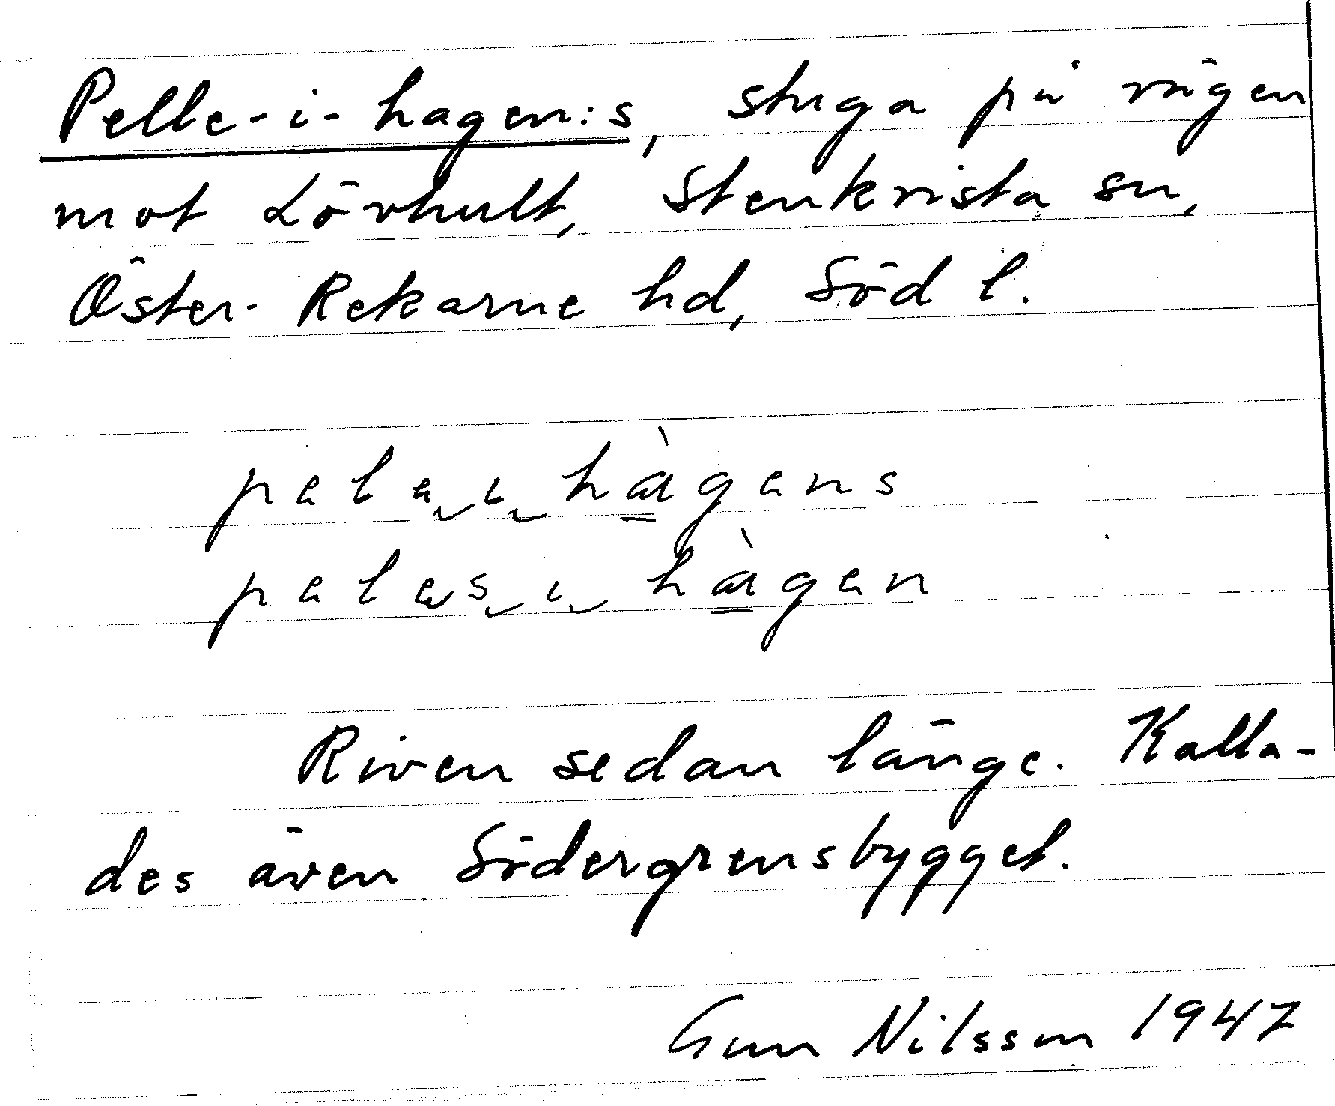 Pelle-i-hagen:s, stuga på vägen
mot Lövhult, Stenkvista sn,
Öster-Rekarne hd, Söd l.
pele i hàgens
peles i hàgen
Riven sedan länge. Kalla-
des även Södergrensbygget.
Gun Nilsson 1947